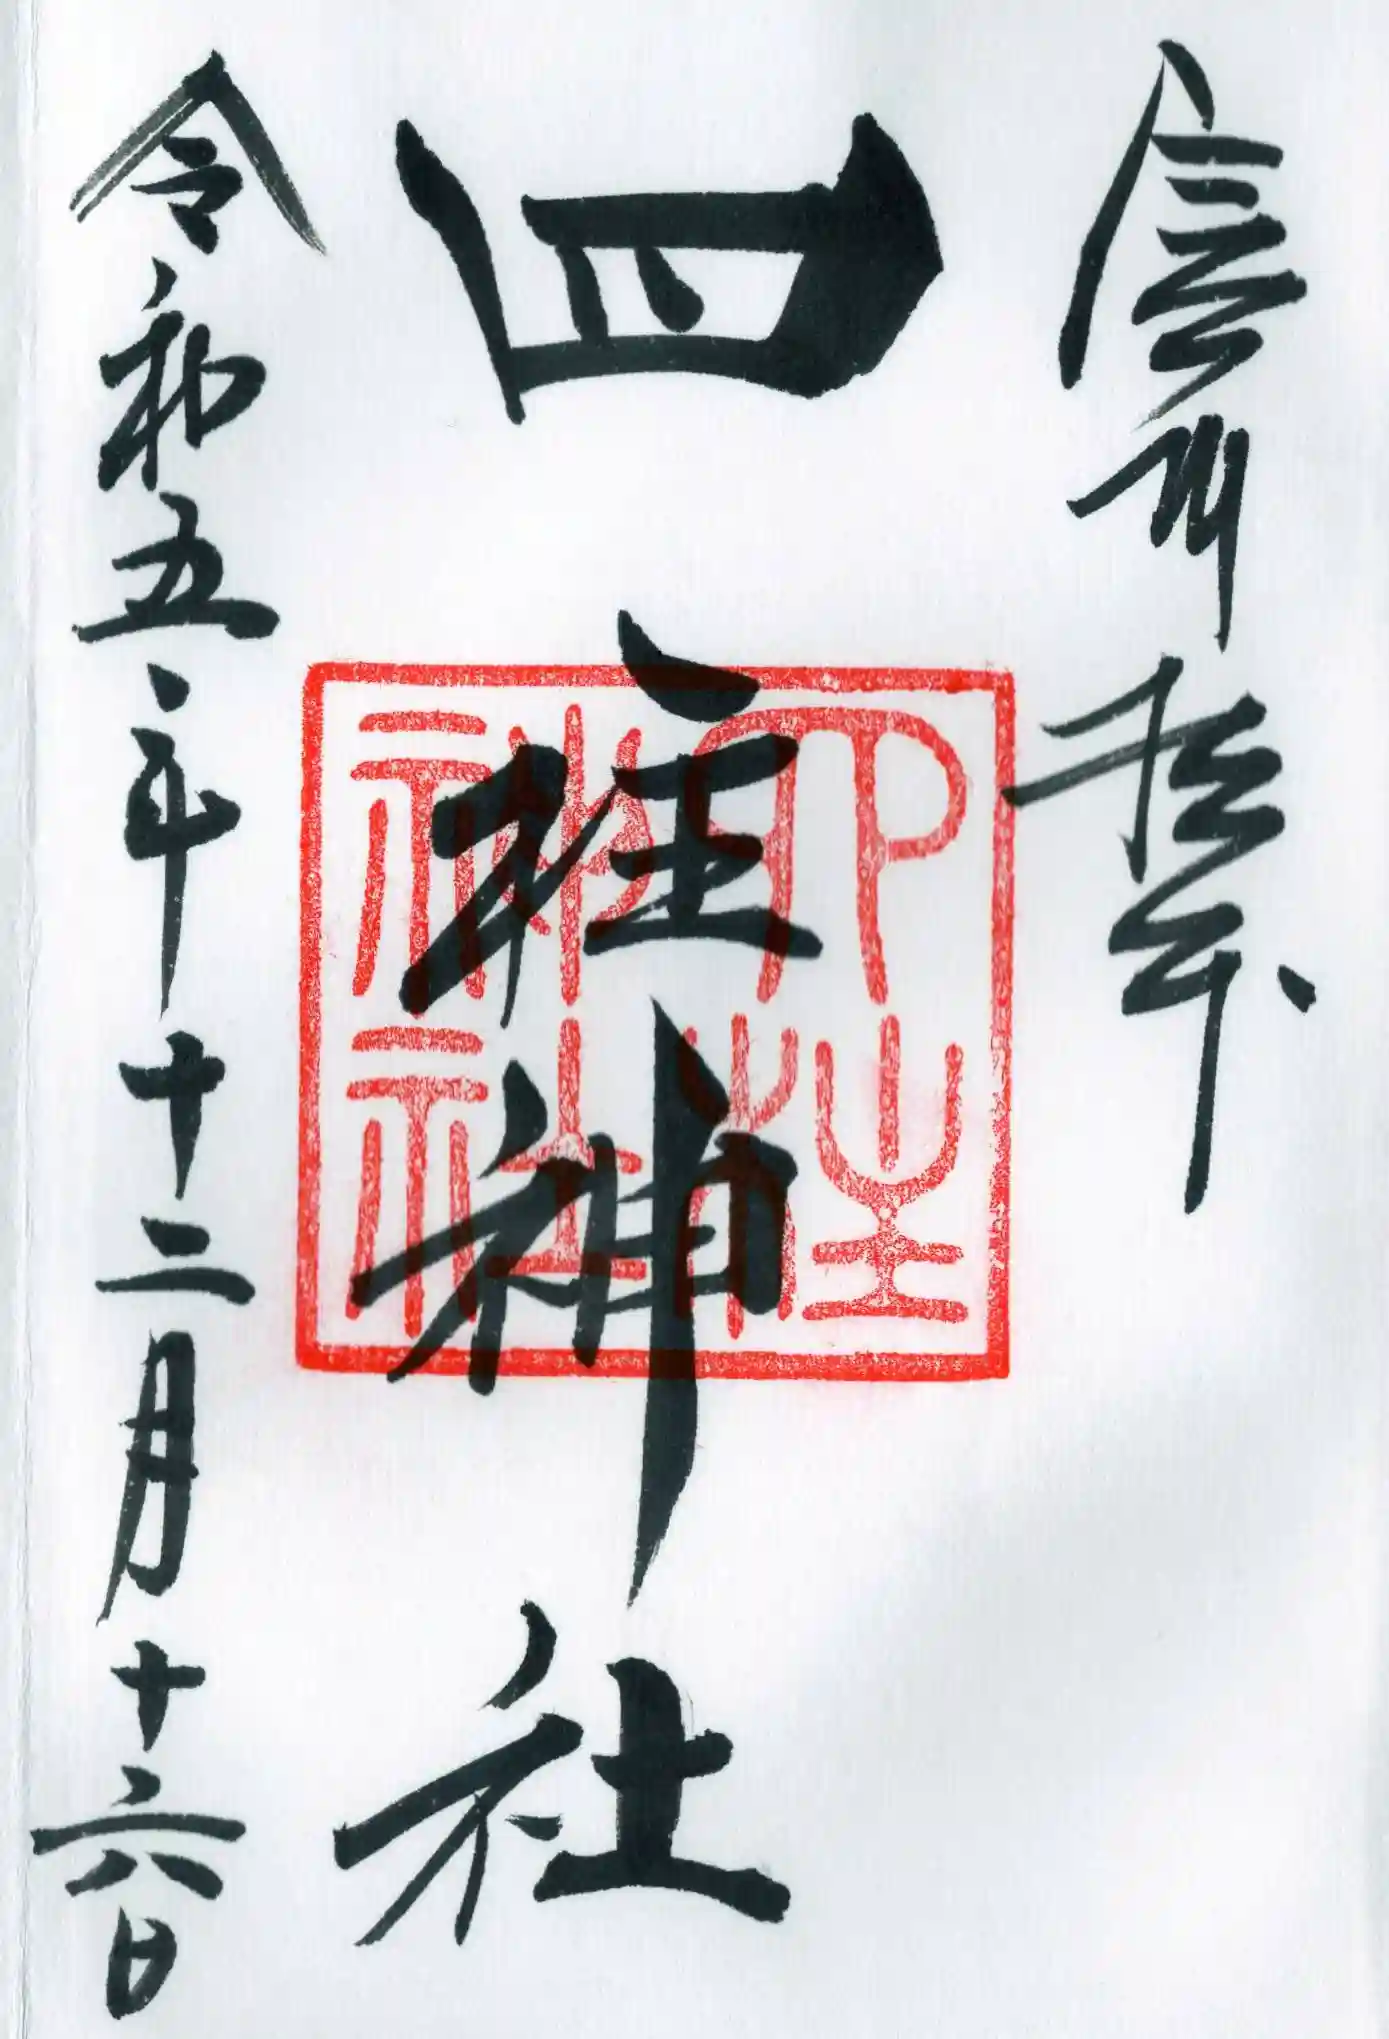 信州松本
四柱神社
四柱
神社
令和五年十二月十六日